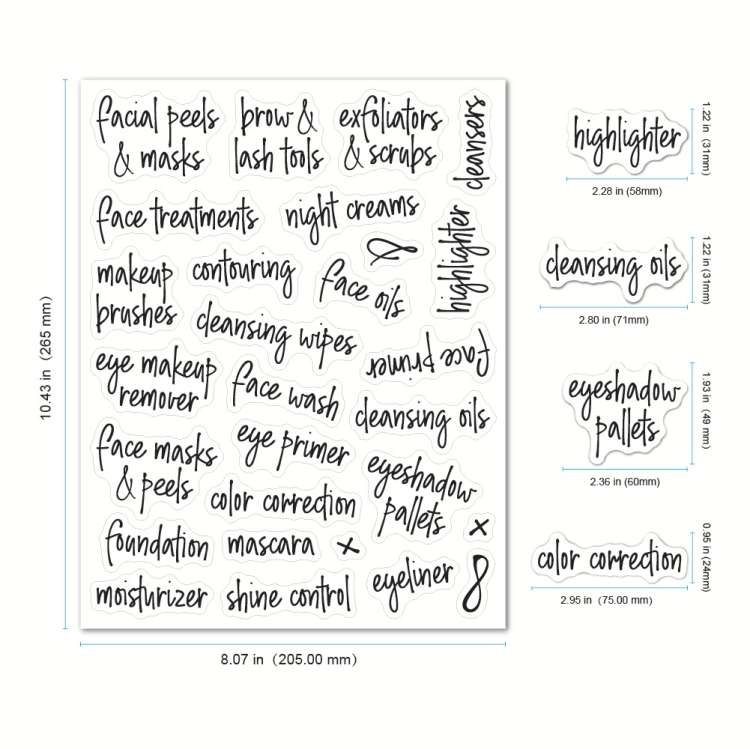 facial peels
& masks
brow &
lash tools
exfoliators
& scrubs
cleansers
face treatments
night creams
&
highlighter
makeup
brushes
contouring
face oils
cleansing wipes
face primer
eye makeup
remover
face wash
cleansing oils
face masks
& peels
eye primer
eyeshadow
pallets
color correction
x
foundation
mascara
x
moisturizer
shine control
eyeliner
&
10.43 in (265 mm)
8.07 in (205.00 mm)
highlighter
1.22 in
(31mm)
2.28 in (58mm)
cleansing oils
1.22 in (31mm)
2.80 in (71mm)
eyeshadow
pallets
1.93 in (49 mm)
2.36 in (60mm)
color correction
0.95 in (24mm)
2.95 in (75.00 mm)